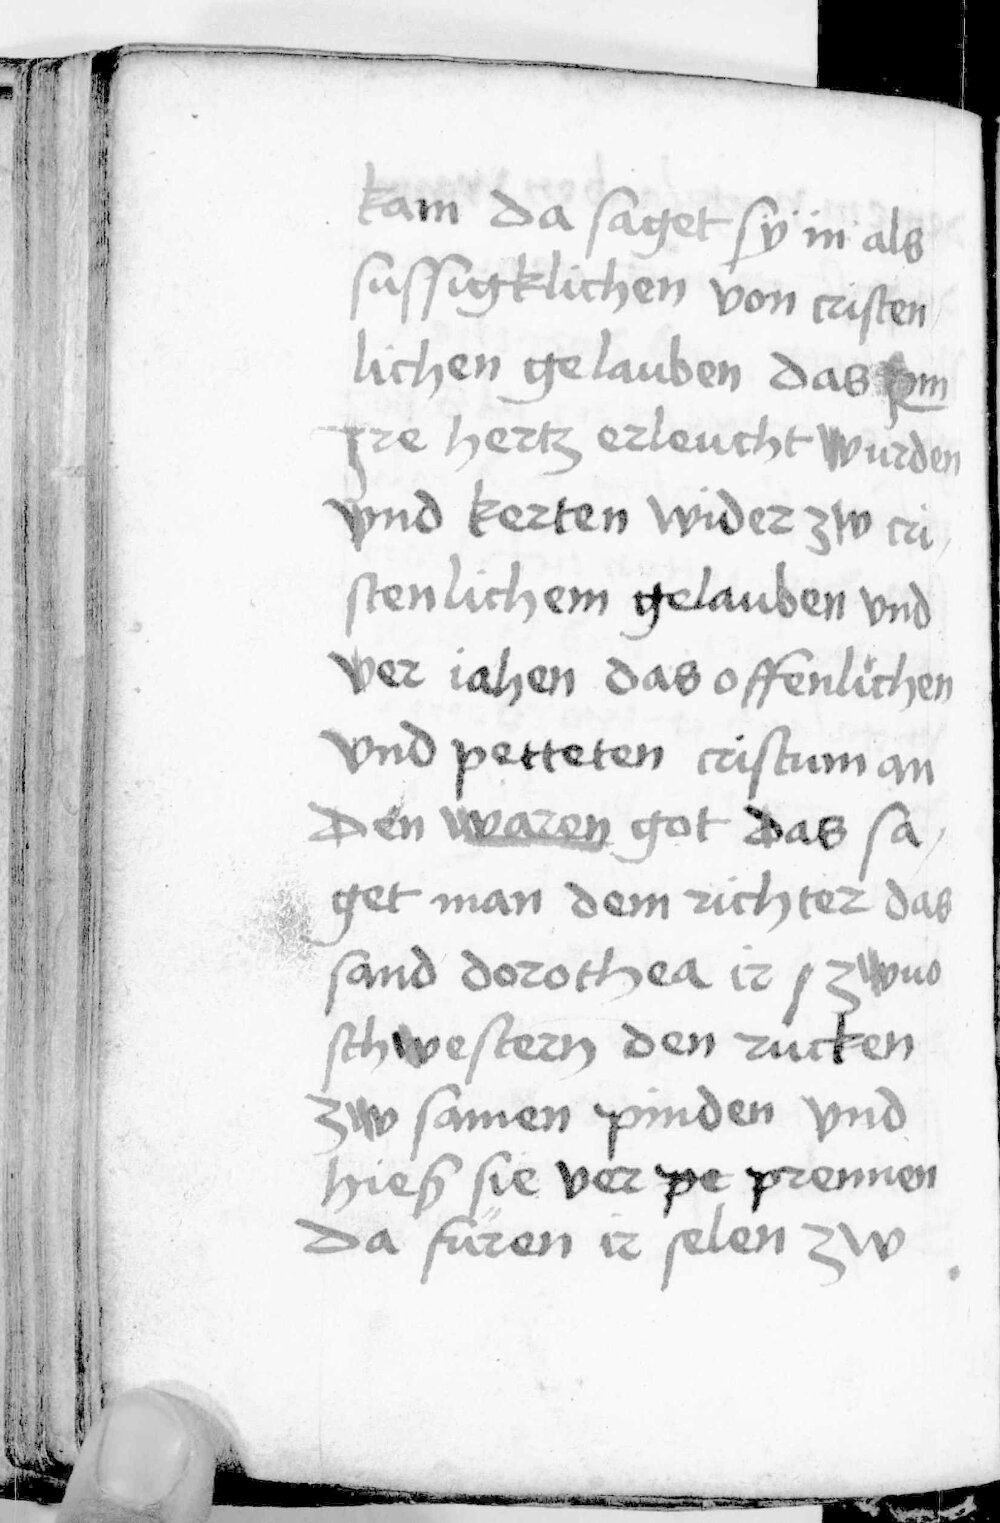 kam da saget sÿ in als
sussigklichen von cristen
lichen gelauben das ym
yre hertz erleucht wurden
vnd kerten wider zw cri,
stenlichem gelauben vnd
ver iahen das offenlichen
vnd petteten cristum an
den waren got das sa,
get man dem richter das
sand dorothea ir zwuo
schwestern den rucken
zw samen pinden vnd
hieß sie ver pe prennen
da furen ir selen zw